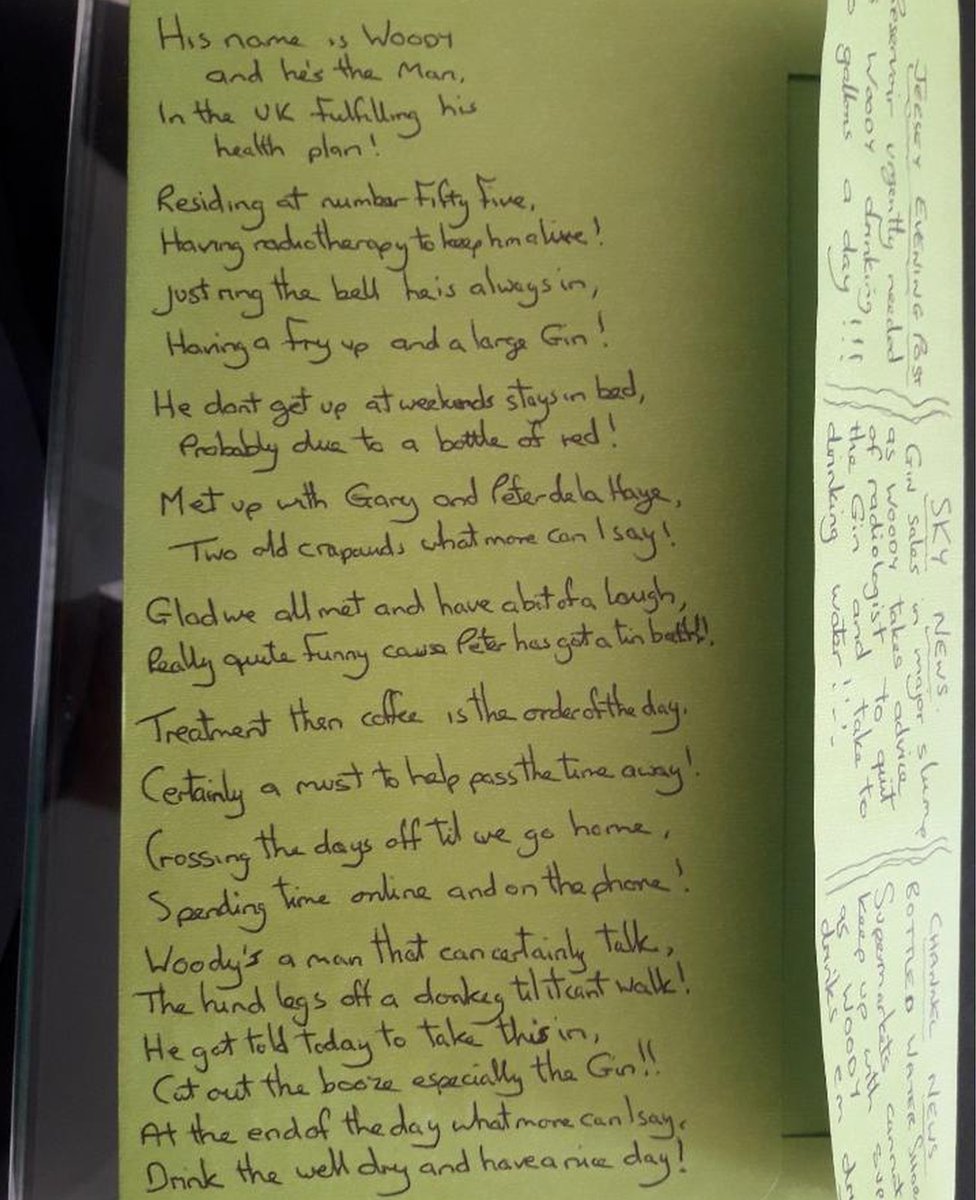 His name is WOODY
and he's the Man,
In the UK fulfilling his
health plan!
Residing at number Fifty Five,
Having radiotherapy to keep him alive!
Just ring the bell he is always in,
Having a fry up and a large Gin!
He dont get up at weekends stays in bed,
Probably due to a bottle of red!
Met up with Gary and Peter de la Haye,
Two old crapauds what more can I say!
Glad we all met and have a bit of a laugh,
Really quite funny cause Peter has got a tin bath!!
Treatment then coffee is the order of the day,
Certainly a must to help pass the time away!
Crossing the days off til we go home,
Spending time online and on the phone!
Woody's a man that can certainly talk,
The hind legs off a donkey til it cant walk!
He got told today to take this in,
Cut out the booze especially the Gin!!
At the end of the day what more can I say,
Drink the well dry and have a nice day!
JERSEY EVENING POST
Reservoir urgently needed
WOODY drinking
gallons a day!!!
SKY NEWS.
Gin sales in major slump
as WOODY takes advice
of radiologist to quit
the Gin and take to
drinking water!!
CHANNEL NEWS
BOTTLED WATER
Supermarkets cannot
keep up with
as WOODY
drinks em